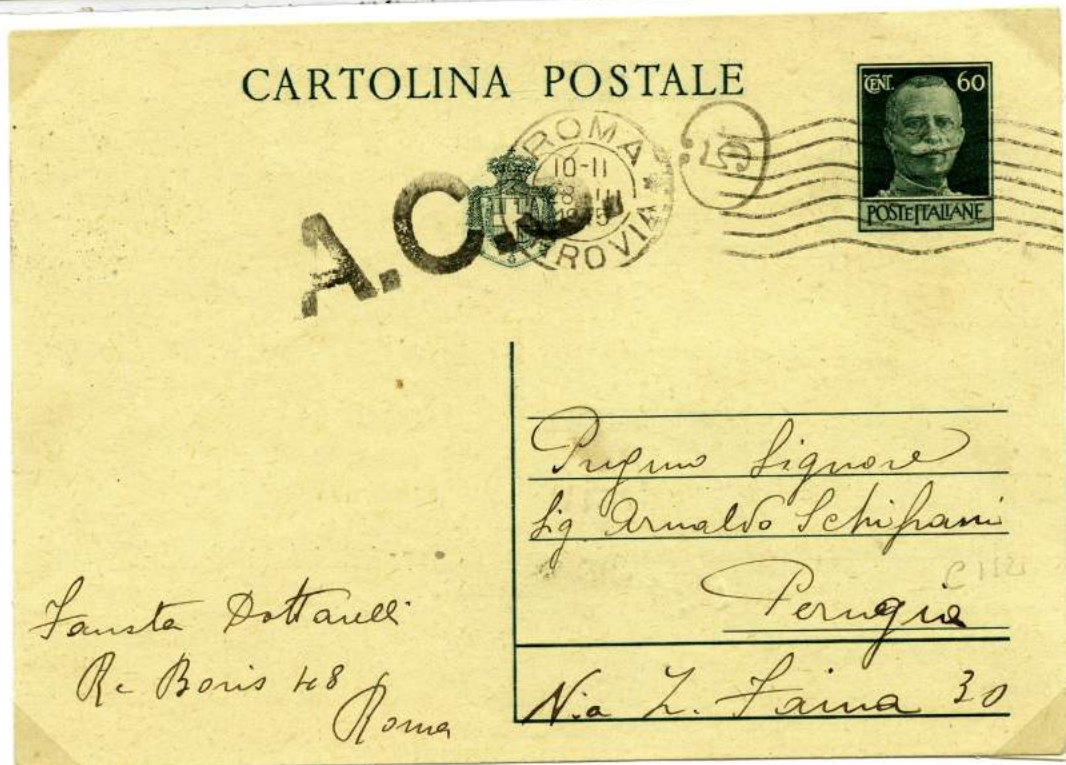 CARTOLINA POSTALE
CENT. 60
POSTE ITALIANE
ROMA
10-11
A.C.S.
Signore
Sig. Arnaldo Schifani
Perugia
Via Z. Faina 30
Fausta Dottarelli
Re Boris 48
Roma